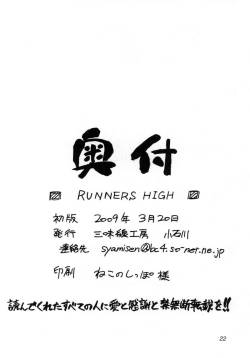 奥付
RUNNERS HIGH
初版 2009年 3月20日
発行 三味線工房 小石川
連絡先 syamisen@bc4.so-net.ne.jp
印刷 ねこのしっぽ 様
読んでくれたすべての人に愛と感謝と禁無断転載を!!
22